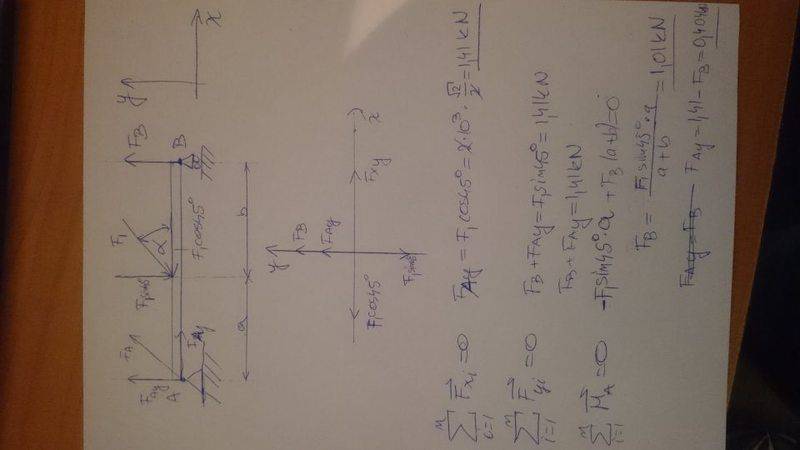 y
x
F_Ay
F_A
A
F_Ay
a
F₁sin45°
F₁
α
F₁cos45°
b
F_B
B
y
F_B
F_Ay
F₁cos45°
F_xy
x
F₁sin45°
∑ F⃗xi = 0 F_Ay = F₁cos45° = 2·10³·√2/2 = 1,41kN
i=1
∑ F⃗yi = 0 F_B + F_Ay = F₁sin45° = 1,41kN
i=1
F_B + F_Ay = 1,41kN
∑ M⃗_A = 0 -F₁sin45°·a + F_B(a+b) = 0
i=1
F_B = F₁sin45°·a / a+b = 1,01kN
F_Ay = F_B F_Ay = 1,41 - F_B = 0,404